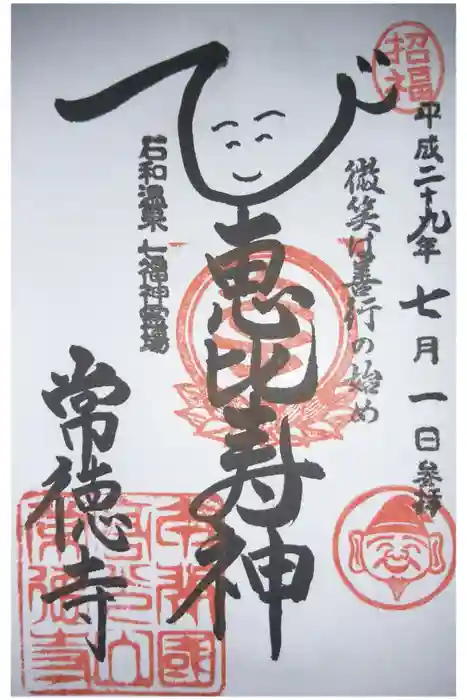 招福
平成二十九年 七月一日参拝
微笑は善行の始め
び
恵比寿神
石和温泉七福神霊場
常徳寺